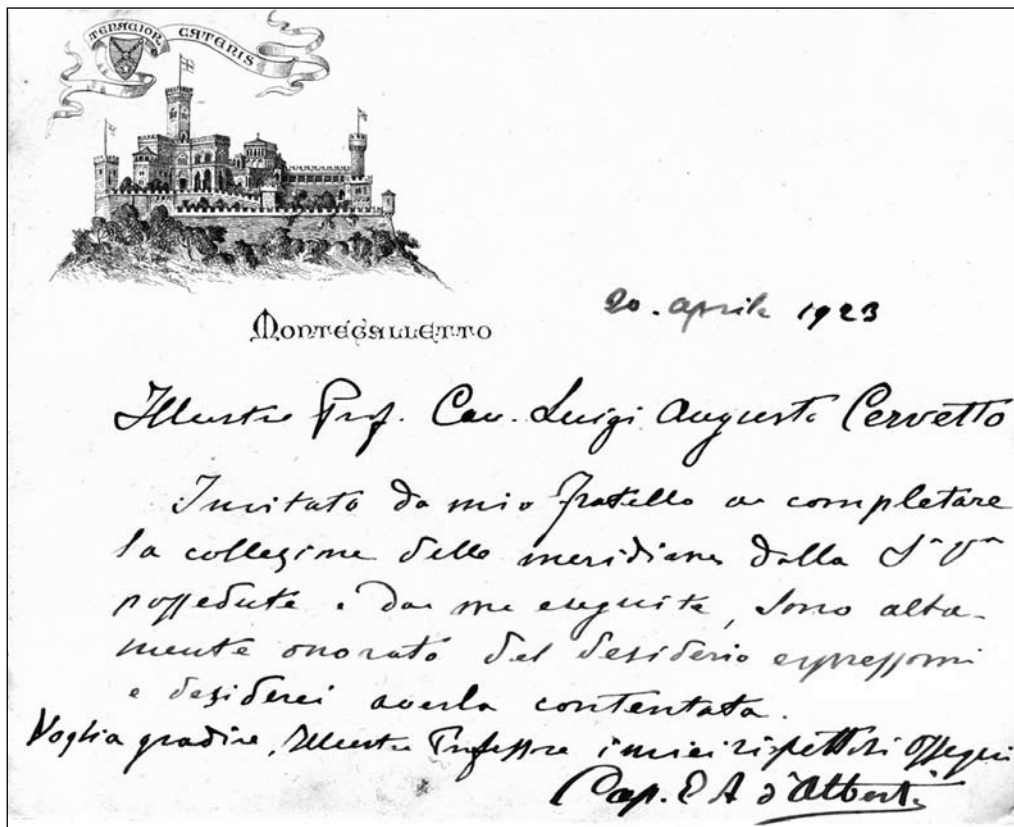 TENACIOR CATENIS
MONTEGALLETTO
20. aprile 1923
Illustre Prof. Cav. Luigi Augusto Cervetto
Invitato da mio fratello a completare
la collezione delle meridiane dalla Sa Va
possedute e da me eseguite, sono alta-
mente onorato del desiderio espressomi
e desiderei averla contentata.
Voglia gradire, Illustre Professore i miei rispettosi ossequi
Cap. E A d'Albertis